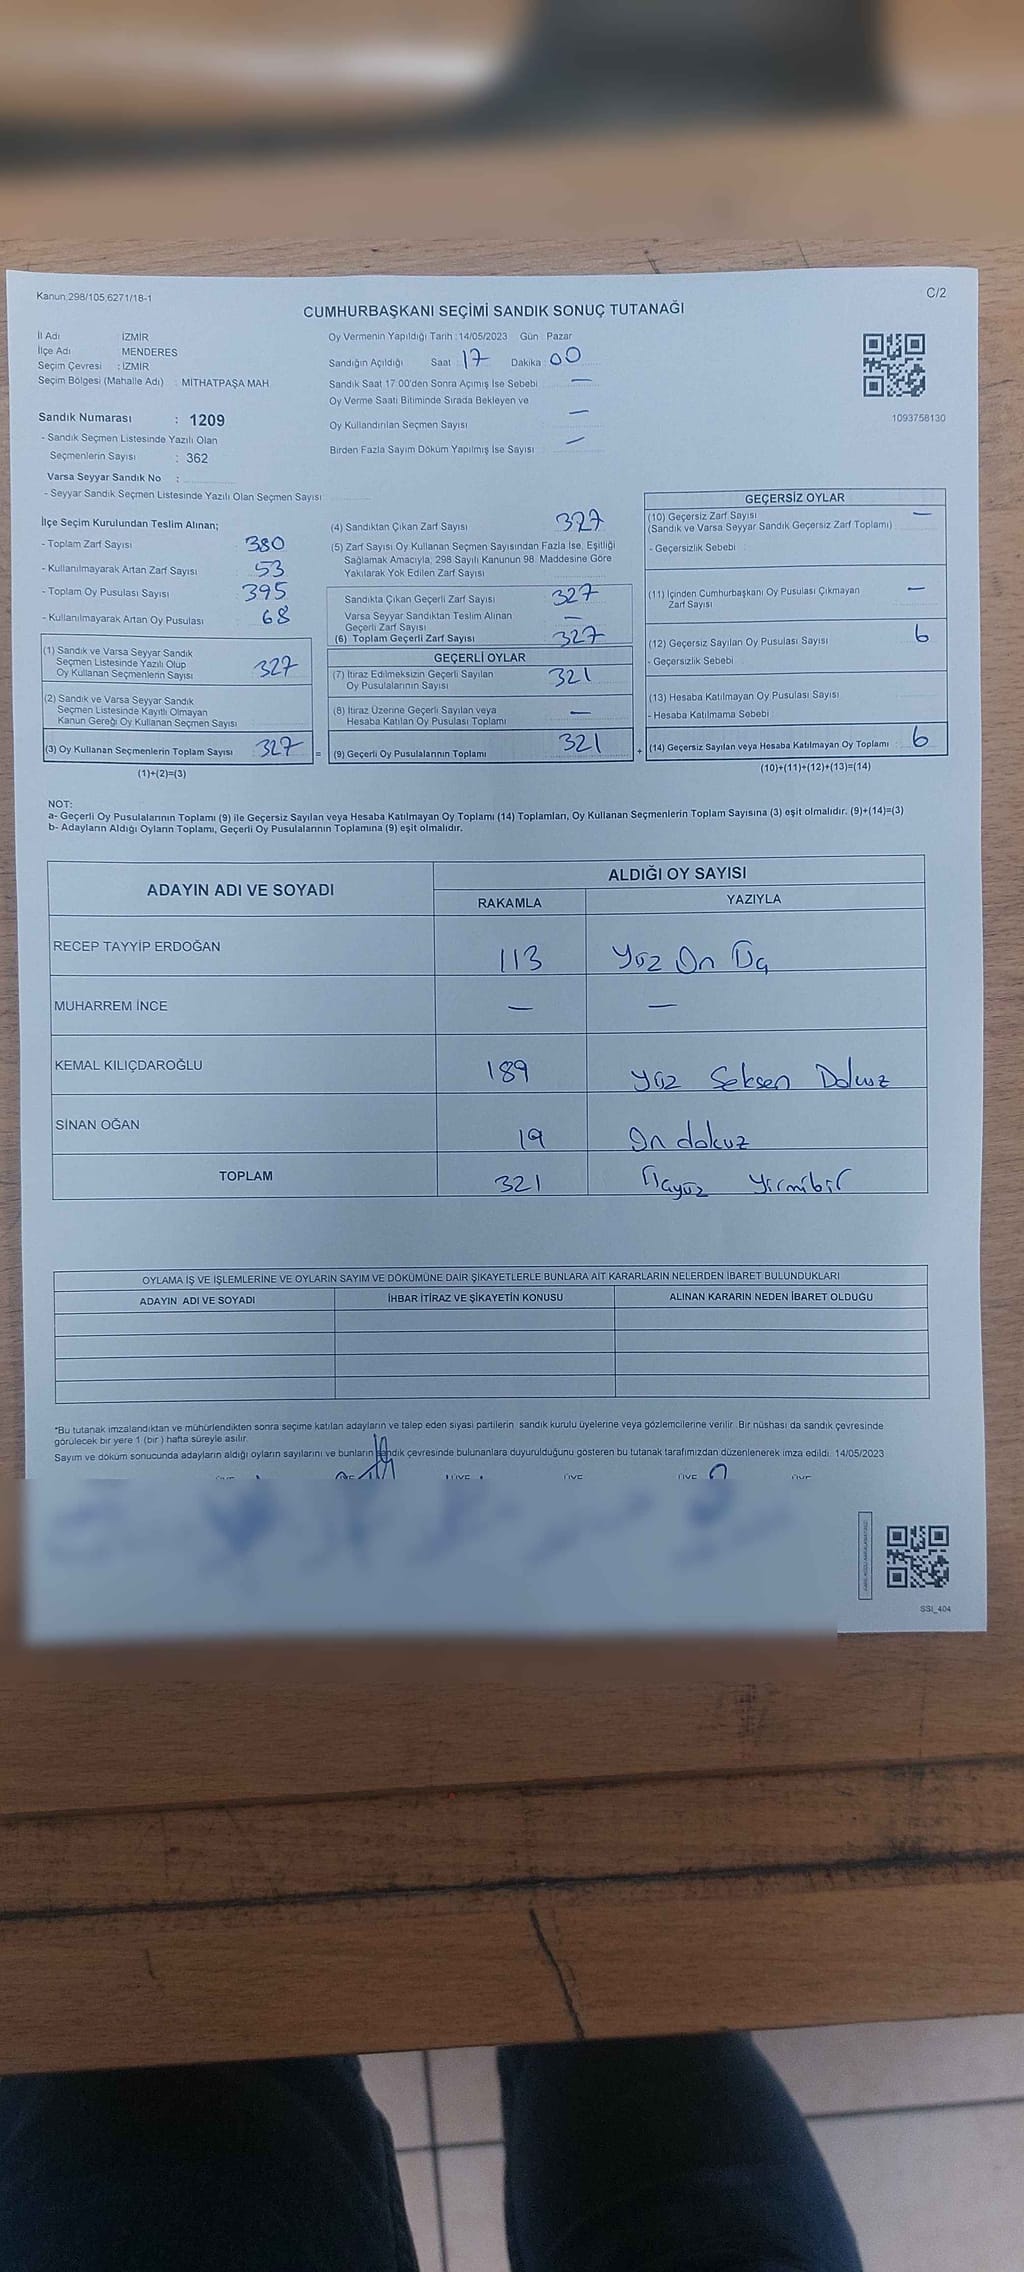 Kanun:298/105,6271/18-1
C/2
CUMHURBAŞKANI SEÇİMİ SANDIK SONUÇ TUTANAĞI
İl Adı : İZMİR
İlçe Adı : MENDERES
Seçim Çevresi : İZMİR
Seçim Bölgesi (Mahalle Adı) : MİTHATPAŞA MAH.
Sandık Numarası : 1209
- Sandık Seçmen Listesinde Yazılı Olan
Seçmenlerin Sayısı : 362
Varsa Seyyar Sandık No :
- Seyyar Sandık Seçmen Listesinde Yazılı Olan Seçmen Sayısı
Oy Vermenin Yapıldığı Tarih : 14/05/2023 Gün : Pazar
Sandığın Açıldığı Saat 17 Dakika 00
Sandık Saat 17:00'den Sonra Açımış İse Sebebi —
Oy Verme Saati Bitiminde Sırada Bekleyen ve
Oy Kullandırılan Seçmen Sayısı —
Birden Fazla Sayım Döküm Yapılmış İse Sayısı —
1093758130
İlçe Seçim Kurulundan Teslim Alınan;
- Toplam Zarf Sayısı 380
- Kullanılmayarak Artan Zarf Sayısı 53
- Toplam Oy Pusulası Sayısı 395
- Kullanılmayarak Artan Oy Pusulası 68
(1) Sandık ve Varsa Seyyar Sandık
Seçmen Listesinde Yazılı Olup
Oy Kullanan Seçmenlerin Sayısı 327
(2) Sandık ve Varsa Seyyar Sandık
Seçmen Listesinde Kayıtlı Olmayan
Kanun Gereği Oy Kullanan Seçmen Sayısı
(3) Oy Kullanan Seçmenlerin Toplam Sayısı 327 =
(1)+(2)=(3)
(4) Sandıktan Çıkan Zarf Sayısı 327
(5) Zarf Sayısı Oy Kullanan Seçmen Sayısından Fazla İse, Eşitliği
Sağlamak Amacıyla, 298 Sayılı Kanunun 98. Maddesine Göre
Yakılarak Yok Edilen Zarf Sayısı
Sandıkta Çıkan Geçerli Zarf Sayısı 327
Varsa Seyyar Sandıktan Teslim Alınan
Geçerli Zarf Sayısı —
(6) Toplam Geçerli Zarf Sayısı 327
GEÇERLİ OYLAR
(7) İtiraz Edilmeksizin Geçerli Sayılan
Oy Pusulalarının Sayısı 321
(8) İtiraz Üzerine Geçerli Sayılan veya
Hesaba Katılan Oy Pusulası Toplamı —
(9) Geçerli Oy Pusulalarının Toplamı 321 +
GEÇERSİZ OYLAR
(10) Geçersiz Zarf Sayısı —
(Sandık ve Varsa Seyyar Sandık Geçersiz Zarf Toplamı)
- Geçersizlik Sebebi
(11) İçinden Cumhurbaşkanı Oy Pusulası Çıkmayan —
Zarf Sayısı
(12) Geçersiz Sayılan Oy Pusulası Sayısı 6
- Geçersizlik Sebebi
(13) Hesaba Katılmayan Oy Pusulası Sayısı
- Hesaba Katılmama Sebebi
(14) Geçersiz Sayılan veya Hesaba Katılmayan Oy Toplamı 6
(10)+(11)+(12)+(13)=(14)
NOT:
a- Geçerli Oy Pusulalarının Toplamı (9) ile Geçersiz Sayılan veya Hesaba Katılmayan Oy Toplamı (14) Toplamları, Oy Kullanan Seçmenlerin Toplam Sayısına (3) eşit olmalıdır. (9)+(14)=(3)
b- Adayların Aldığı Oyların Toplamı, Geçerli Oy Pusulalarının Toplamına (9) eşit olmalıdır.
ADAYIN ADI VE SOYADI
ALDIĞI OY SAYISI
RAKAMLA YAZIYLA
RECEP TAYYİP ERDOĞAN 113 Yüz On Üç
MUHARREM İNCE — —
KEMAL KILIÇDAROĞLU 189 Yüz Seksen Dokuz
SİNAN OĞAN 19 On dokuz
TOPLAM 321 Üçyüz Yirmibir
OYLAMA İŞ VE İŞLEMLERİNE VE OYLARIN SAYIM VE DÖKÜMÜNE DAİR ŞİKAYETLERLE BUNLARA AİT KARARLARIN NELERDEN İBARET BULUNDUKLARI
ADAYIN ADI VE SOYADI İHBAR İTİRAZ VE ŞİKAYETİN KONUSU ALINAN KARARIN NEDEN İBARET OLDUĞU
*Bu tutanak imzalandıktan ve mühürlendikten sonra seçime katılan adayların ve talep eden siyasi partilerin sandık kurulu üyelerine veya gözlemcilerine verilir. Bir nüshası da sandık çevresinde
görülecek bir yere 1 (bir) hafta süreyle asılır.
Sayım ve döküm sonucunda adayların aldığı oyların sayılarını ve bunların sandık çevresinde bulunanlara duyurulduğunu gösteren bu tutanak tarafımızdan düzenlenerek imza edildi. 14/05/2023
ÜYE ÜYE ÜYE ÜYE
SSI_404